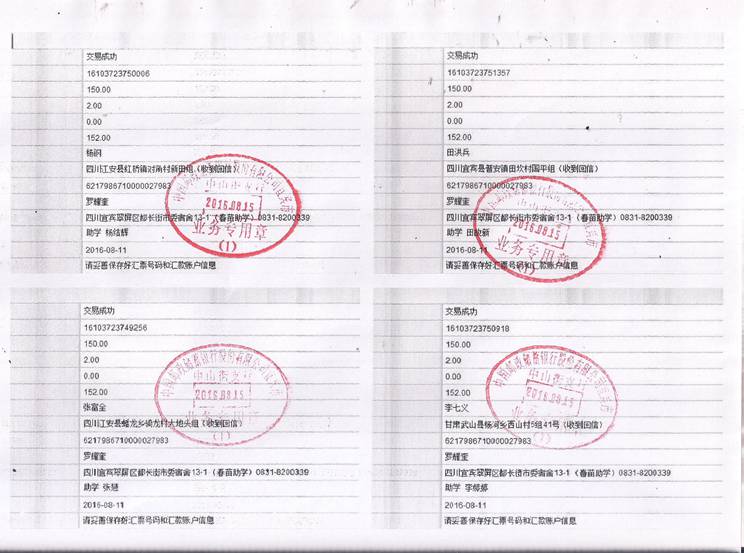 交易成功
16103723750006
150.00
2.00
0.00
152.00
四川江安县红桥镇对角村新田组(收到回信)
6217986710000027983
罗耀奎
四川宜宾翠屏区都长街市委宿舍13-1(春苗助学)0831-8200339
助学
2016-08-11
请妥善保存好汇票号码和汇款账户信息
2016.08.15
业务专用章
(1)
交易成功
16103723751357
150.00
2.00
0.00
152.00
田洪兵
四川宜宾县普安镇田坎村国平组(收到回信)
6217986710000027983
罗耀奎
四川宜宾翠屏区都长街市委宿舍13-1(春苗助学)0831-8200339
助学
2016-08-11
请妥善保存好汇票号码和汇款账户信息
2016.08.15
业务专用章
(1)
交易成功
16103723749256
150.00
2.00
0.00
152.00
张富全
6217986710000027983
罗耀奎
四川宜宾翠屏区都长街市委宿舍13-1(春苗助学)0831-8200339
助学 张慧
2016-08-11
请妥善保存好汇票号码和汇款账户信息
中山街支行
2016.08.15
业务专用章
(1)
交易成功
16103723750918
150.00
2.00
0.00
152.00
李七义
甘肃武山县杨河乡西山村5组41号(收到回信)
6217986710000027983
罗耀奎
四川宜宾翠屏区都长街市委宿舍13-1(春苗助学)0831-8200339
助学 李婷婷
2016-08-11
请妥善保存好汇票号码和汇款账户信息
中山街支行
2016.08.15
业务专用章
(1)